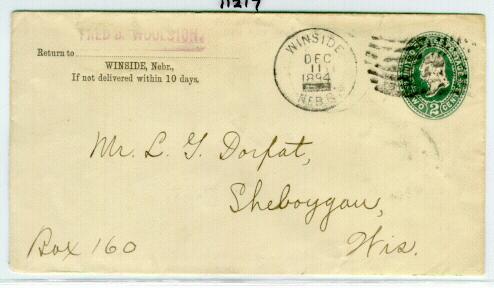 11217
FRED B. WOOLSTON,
Return to
WINSIDE, Nebr.,
If not delivered within 10 days.
WINSIDE
DEC
11
1894
NEBR.
TWO 2 CENTS
Mr. L. G. Dorpat,
Sheboygan,
Wis.
Box 160